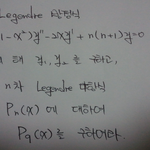 Legendre 방정식
1-x²)y''-2xy'+n(n+1)y=0
의 해 y₁, y₂을 구하고,
n차 Legendre 다항식
Pₙ(x) 에 대하여
P₉(x)을 구하여라.